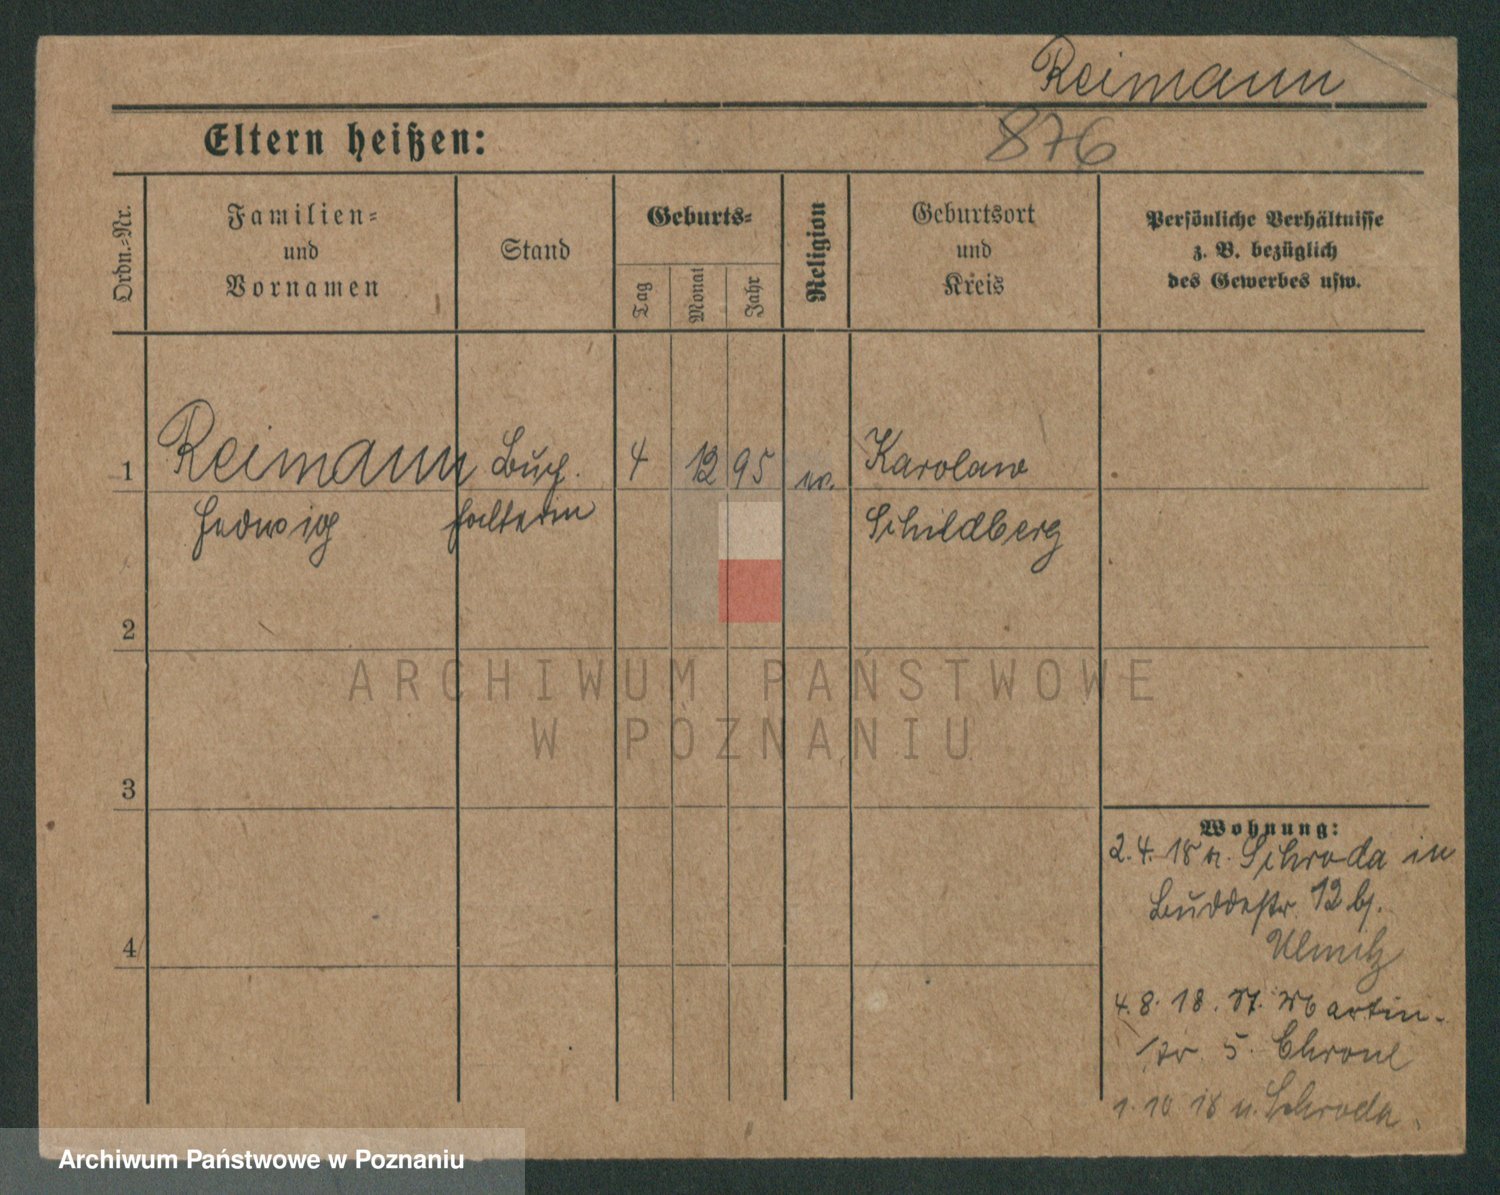 Reimann
Eltern heißen:
876
Ordn.=Nr.
Familien=
und
Vornamen
Stand
Geburts=
Tag
Monat
Jahr
Religion
Geburtsort
und
Kreis
Persönliche Verhältnisse
z. B. bezüglich
des Gewerbes usw.
1
Reimann
Buch.
4
12
95
Karolaw
Hedwig
halterin
Schildberg
2
3
4
ARCHIWUM PAŃSTWOWE
W POZNANIU
Wohnung:
2.4.18 v. Schroda in
Buddestr. 12 bj.
4.8.18. St. Martin-
str. 5.
1.10 18 n. Schroda.
Archiwum Państwowe w Poznaniu